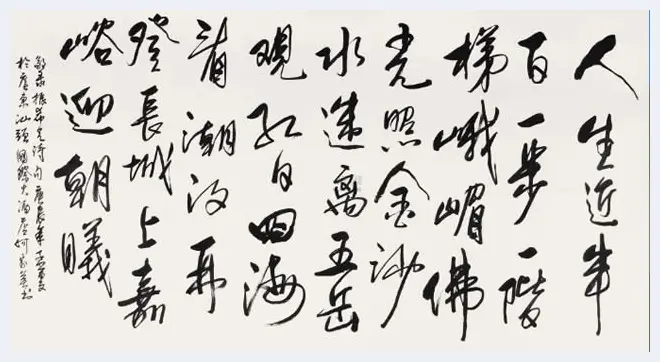 人生近半
百一步一階
梯峨嵋佛
光照金沙
水速離五岳
观红日四海
看潮汐再
登長城上嘉
峪迎朝曦
敬录振先诗句庚辰年孟夏
於广东汕頭國際大酒店何家英书